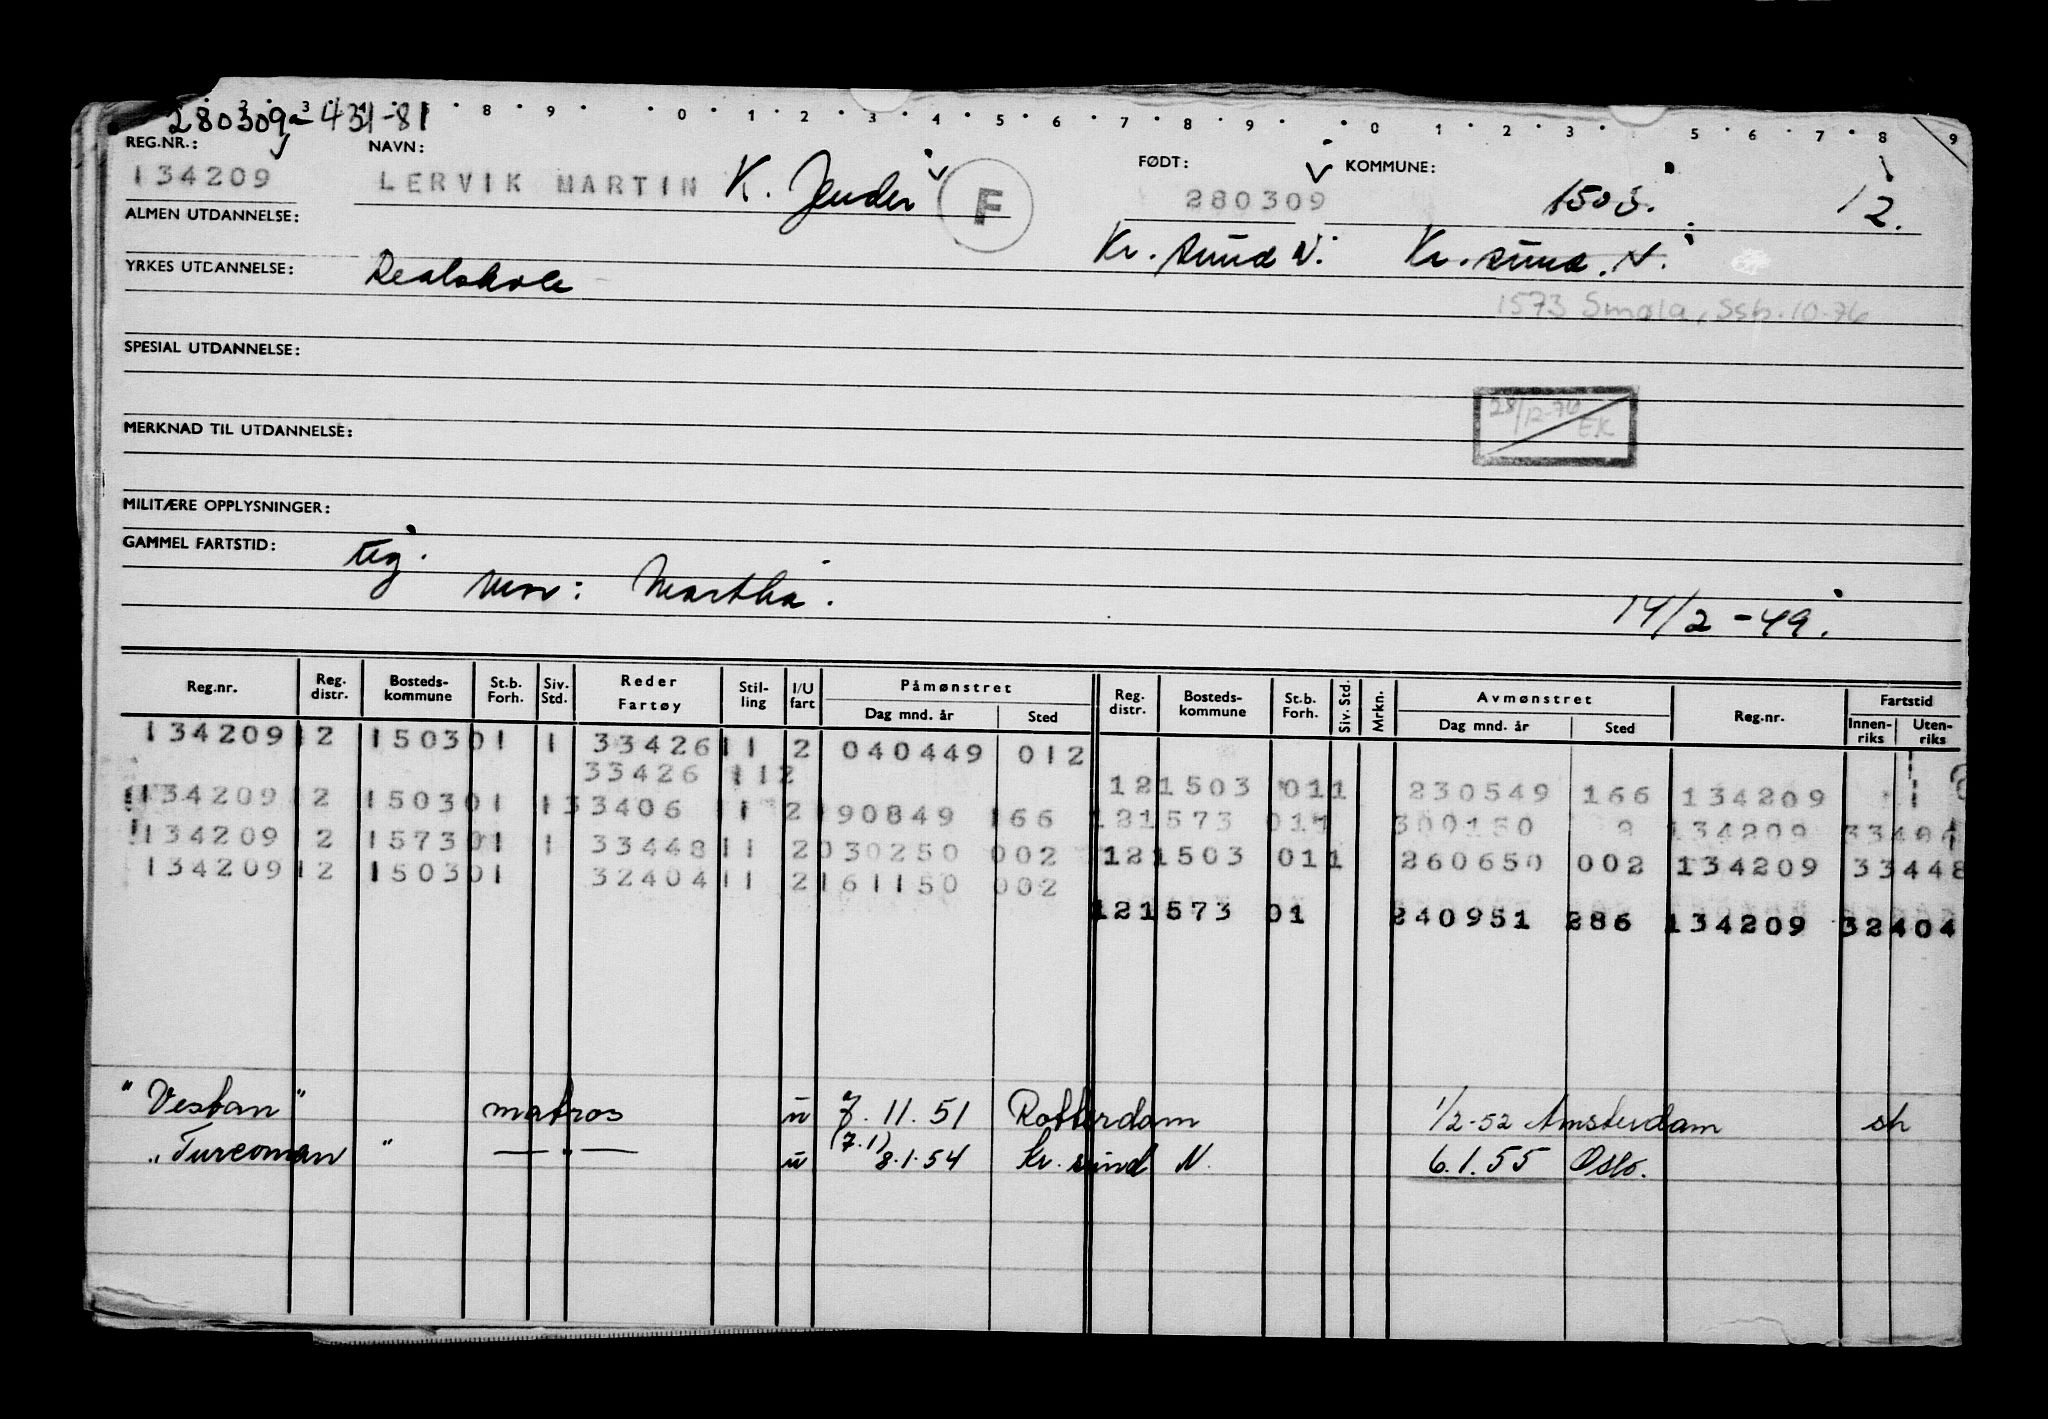 280309a-431-81
REG.NR.: NAVN: FØDT: KOMMUNE:
134209 LERVIK MARTIN K. F 280309 1503. 12.
ALMEN UTDANNELSE: Kr. sund N. Kr. sund. N.
YRKES UTDANNELSE: Realskole
1573 Smøla, Ssb. 10-76
SPESIAL UTDANNELSE:
28/12-76 EK
MERKNAD TIL UTDANNELSE:
MILITÆRE OPPLYSNINGER:
GAMMEL FARTSTID:
Mor: Martha. 14/2-49.
Reg.nr. Reg. distr. Bosteds- kommune St.b. Forh. Siv. Std. Reder Fartøy Stil- ling I/U fart Påmønstret Dag mnd. år Sted Reg. distr. Bosteds- kommune St.b. Forh. Siv. Std. Mrkn. Avmønstret Dag mnd. år Sted Reg.nr. Fartstid Innen- riks Uten- riks
134209 12 1503 01 1 33426 11 2 040449 012
33426 112 12 1503 011 230549 166 134209
134209 12 1503 01 1 33406 11 2 190849 166 12 1573 011 300150 134209
134209 12 1573 01 1 33448 11 2 030250 002 12 1503 011 260650 002 134209 33448
134209 12 1503 01 32404 11 2 161150 002
12 1573 01 240951 286 134209 32404
"Vestan" matros u 7.11.51 Rotterdam 1/2-52 Amsterdam sh
"Turcoman" — " — u (7.1) 8.1.54 Kr. sund N. 6.1.55 Oslo.